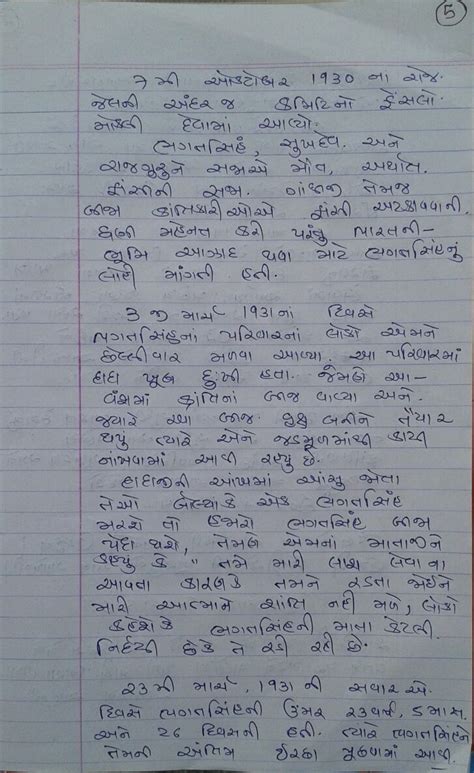 5
7 મી ઓક્ટોબર 1930 ના રોજ.
જેલની અંદર જ કમિટિનો ફેંસલો
મોકલી દેવામાં આવ્યો.
ભગતસિંહ, સુખદેવ અને
રાજગુરુને સજાએ મૌત, અર્થાત
ફાંસીની સજા. ગાંધીજી તેમજ
બીજા ક્રાંતિકારીઓએ ફાંસી અટકાવવાની
ઘણી મહેનત કરી પરંતુ ભારતની-
ભૂમિ આઝાદ થવા માટે ભગતસિંહનું
લોહી માંગતી હતી.
3 જી માર્ચ 1931નાં દિવસે
ભગતસિંહનાં પરિવારનાં લોકો એમને
છેલ્લીવાર મળવા આવ્યા. આ પરિવારમાં
દાદા ખૂબ દુઃખી હતા. જેમણે આ-
વંશમાં ક્રાંતિનાં બીજ વાવ્યા અને.
જ્યારે આ બીજ વૃક્ષ બનીને તૈયાર
થયું ત્યારે એને જડમૂળમાંથી કાપી
નાંખવામાં આવી રહ્યું છે.
દાદાજીની આંખમાં આંસુ જોતા
તેઓ બોલ્યાકે એક ભગતસિંહ
મરશે તો હજારો ભગતસિંહ બીજા
પેદા થશે, તેમણે એમનાં માતાજીને
કહ્યું કે " તમે મારી લાશ લેવા ના
આવતા કારણકે તમને રડતા જોઈને
મારી આત્માને શાંતિ નહી મળે, લોકો
કહેશેકે ભગતસિંહની માતા કેટલી
નિર્દયી છેકે તે રડી રહી છે.
23 મી માર્ચ, 1931 ની સવાર એ.
દિવસે ભગતસિંહની ઉંમર 23 વર્ષ, 5 માસ.
અને 26 દિવસની હતી. ત્યારે ભગતસિંહને
તેમની અંતિમ ઈચ્છા પૂછવામાં આવી